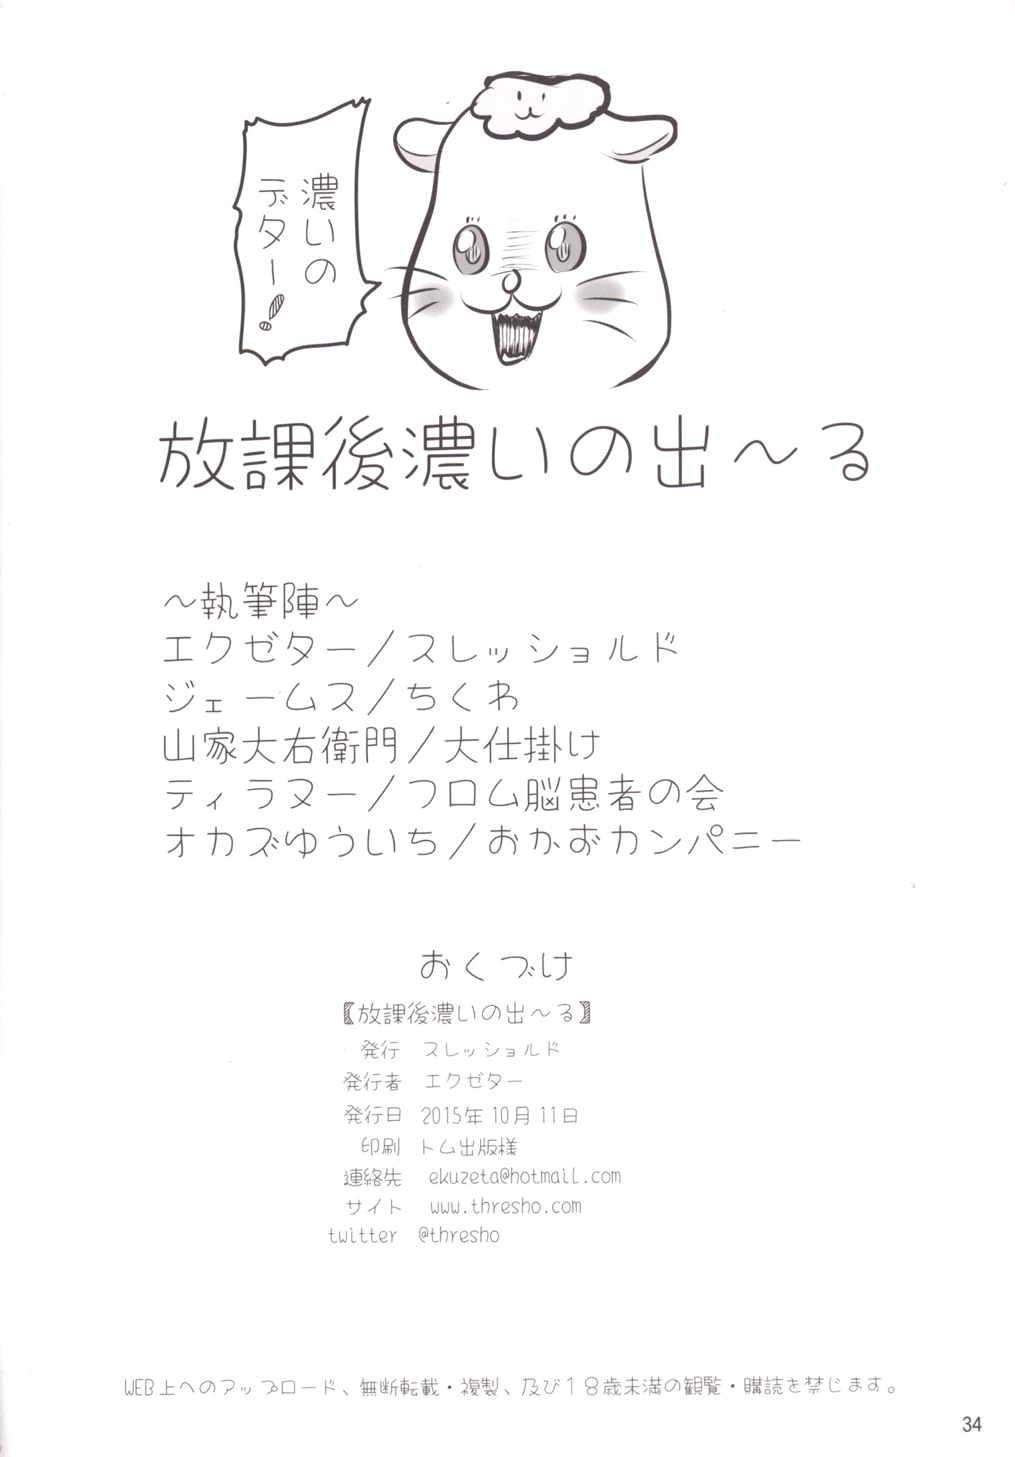 濃いの
デター!
放課後濃いの出～る
～執筆陣～
エクゼター／スレッショルド
ジェームス／ちくわ
山家大右衛門／大仕掛け
ティラヌー／フロム脳患者の会
オカズゆういち／おかずカンパニー
おくづけ
【放課後濃いの出～る】
発行 スレッショルド
発行者 エクゼター
発行日 2015年10月11日
印刷 トム出版様
連絡先 ekuzeta@hotmail.com
サイト www.thresho.com
twitter @thresho
WEB上へのアップロード、無断転載・複製、及び18歳未満の観覧・購読を禁じます。
34